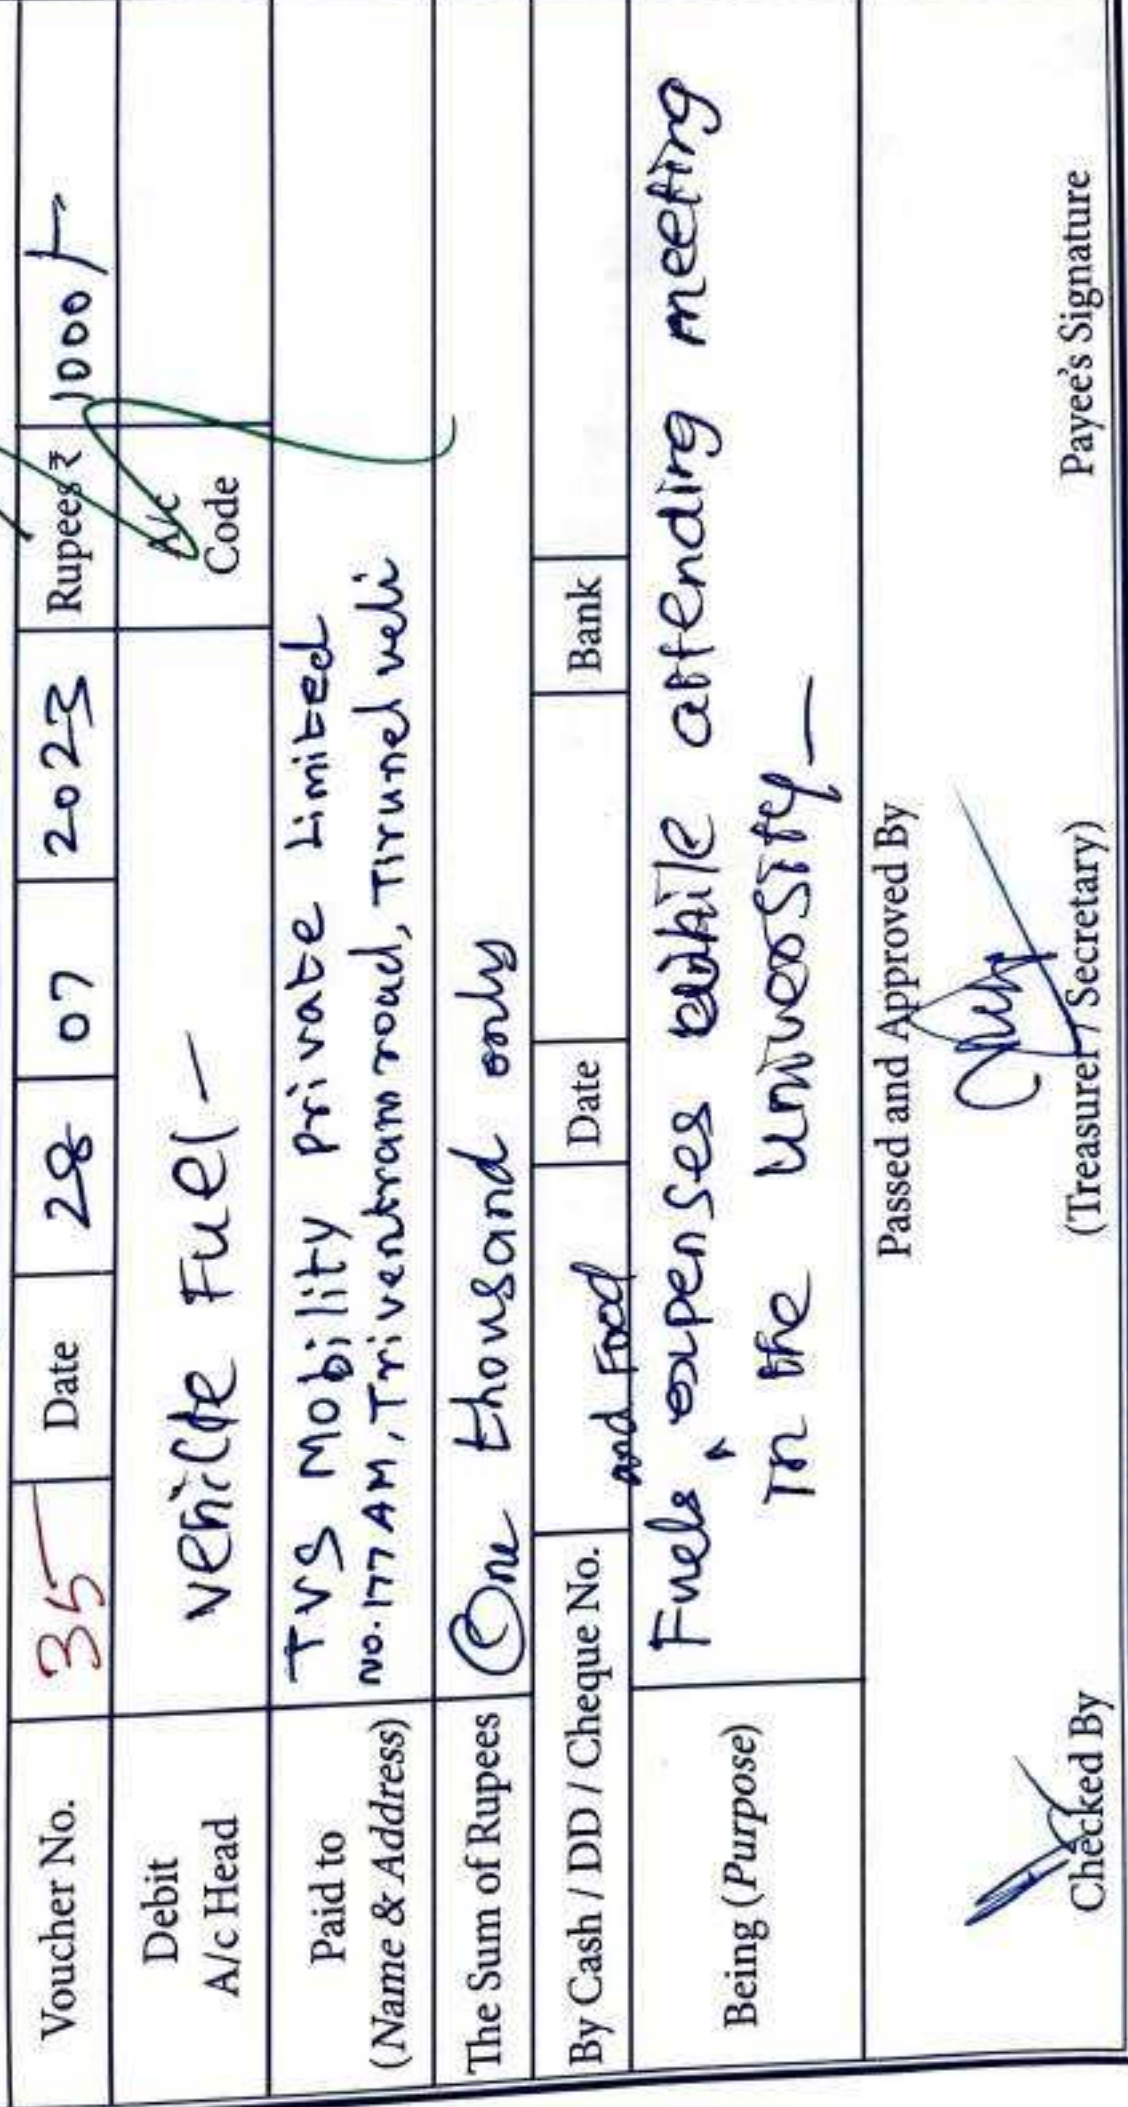 Voucher No. 35 Date 28 07 2023 Rupees ₹ 1000/-
Debit
A/c Head
Vehicle Fuel -
A/c
Code
Paid to
(Name & Address)
TVS Mobility private Limited
No.177 AM, Triventram road, Tirunelveli
The Sum of Rupees One thousand only
By Cash / DD / Cheque No. Date Bank
and Food
Being (Purpose)
Fuels ^ expenses while attending meeting
In the University -
Passed and Approved By
Checked By (Treasurer / Secretary) Payee's Signature